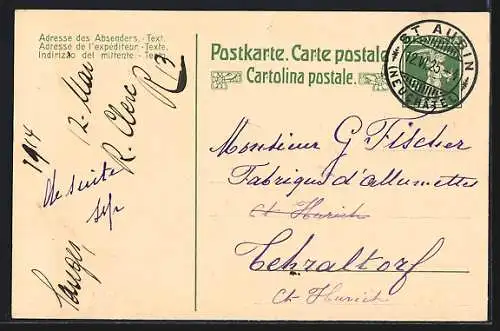 Adresse des Absenders. - Text.
Adresse de l'expéditeur - Texte.
Indirizzo del mittente. - Testo.
Postkarte. Carte postale
Cartolina postale.
ST AUBIN
(NEUCHATEL)
1914
12 Mai
R. Clerc
R 13
de suite
svp
Monsieur G Fischer
Fabrique d'allumettes
Ct Zurich
Fehraltorf
Ct Zurich